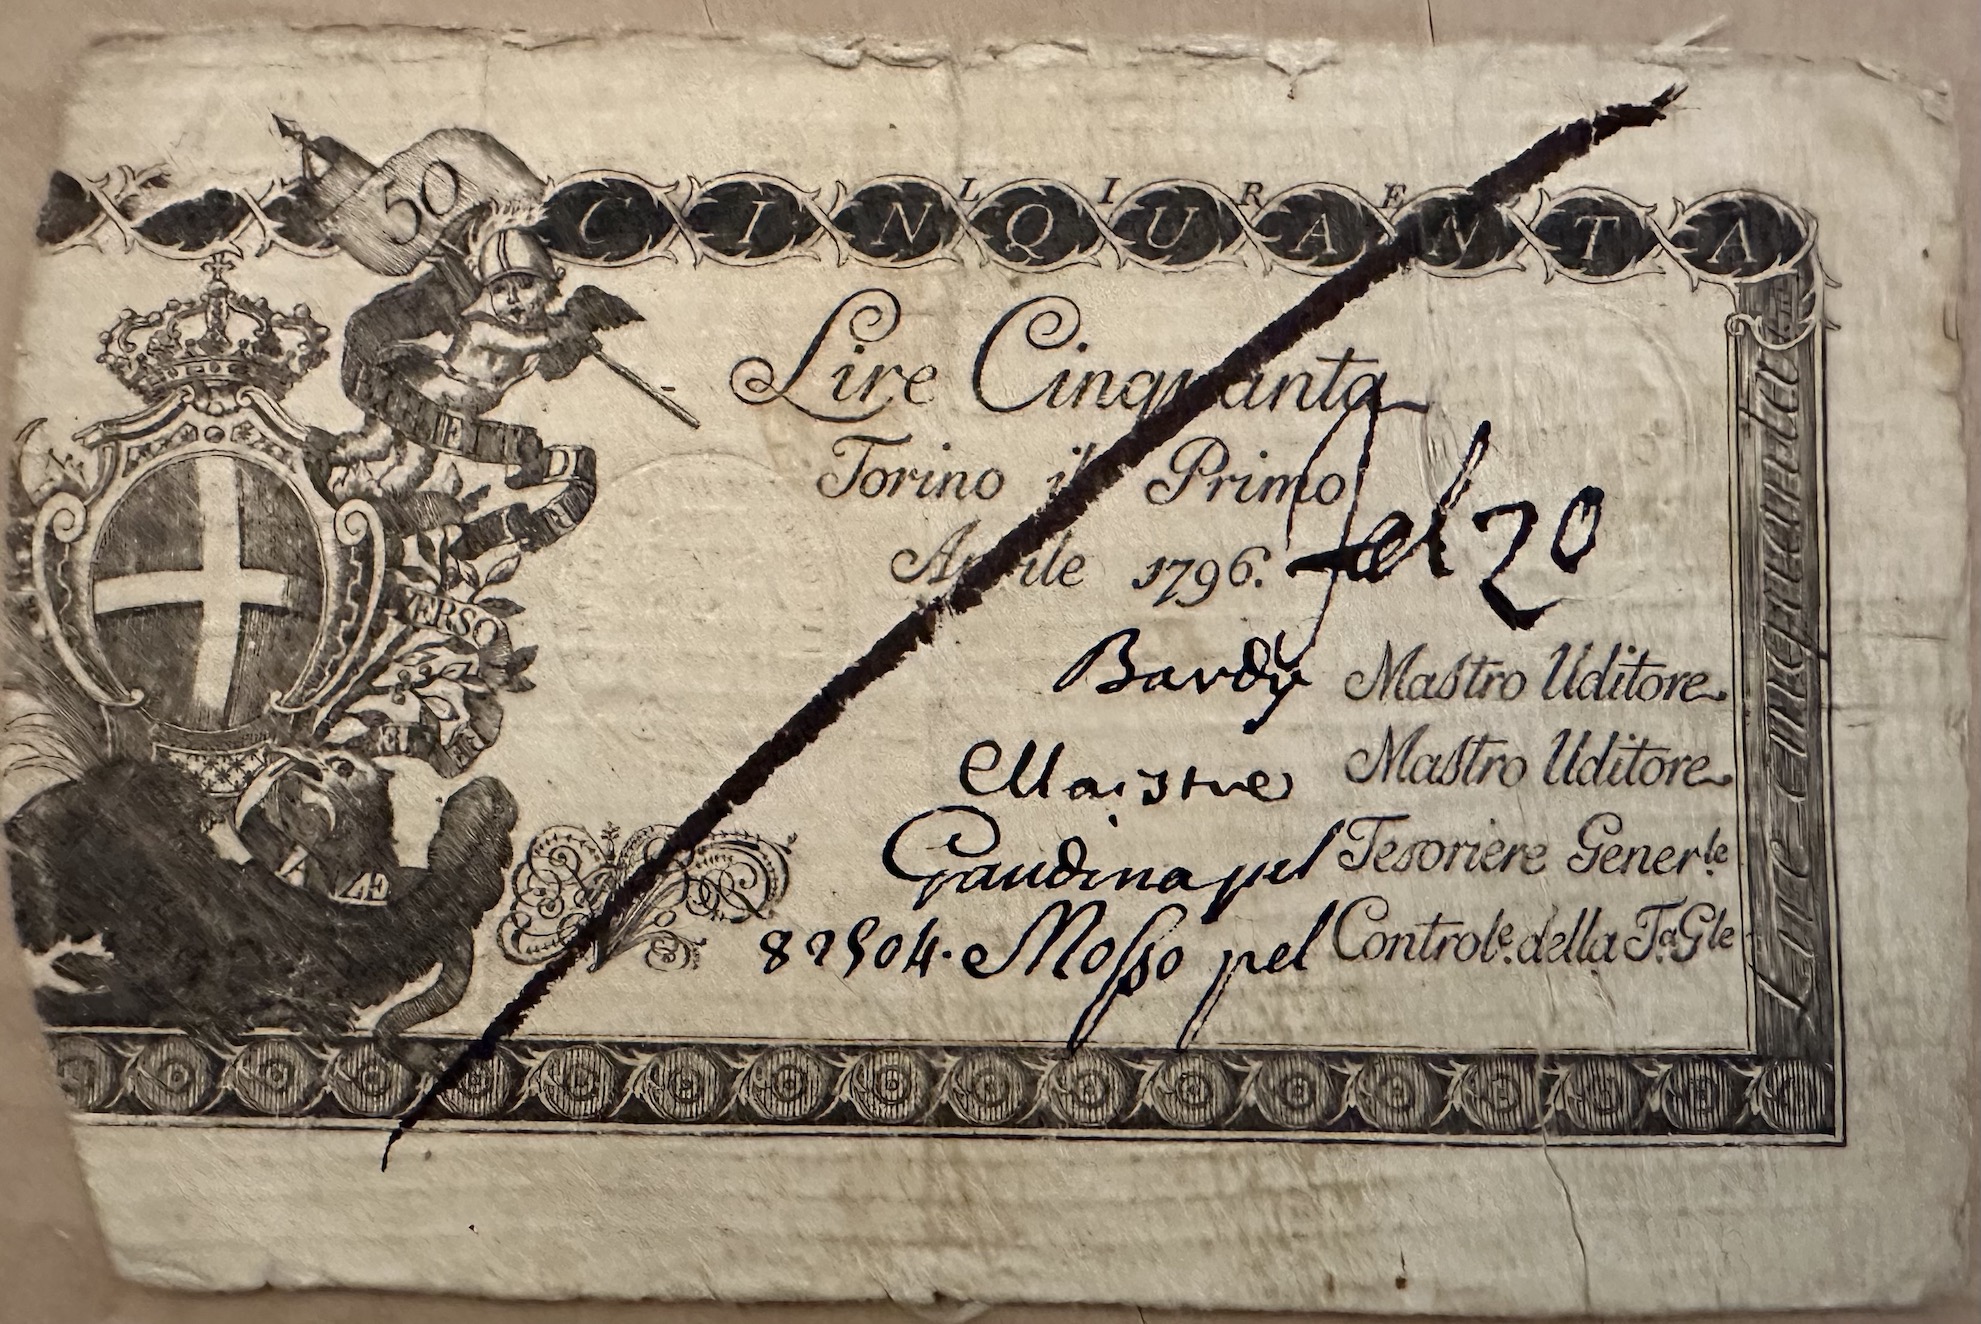 50
LIRE
CINQUANTA
Lire Cinquanta
Torino il Primo
Aprile 1796.
20
Bardy Mastro Uditore
Maistre Mastro Uditore
Gaudina pel Tesoriere Gener.le
82504. Mosso pel Controle. della Ta. Gle
Lire cinquanta